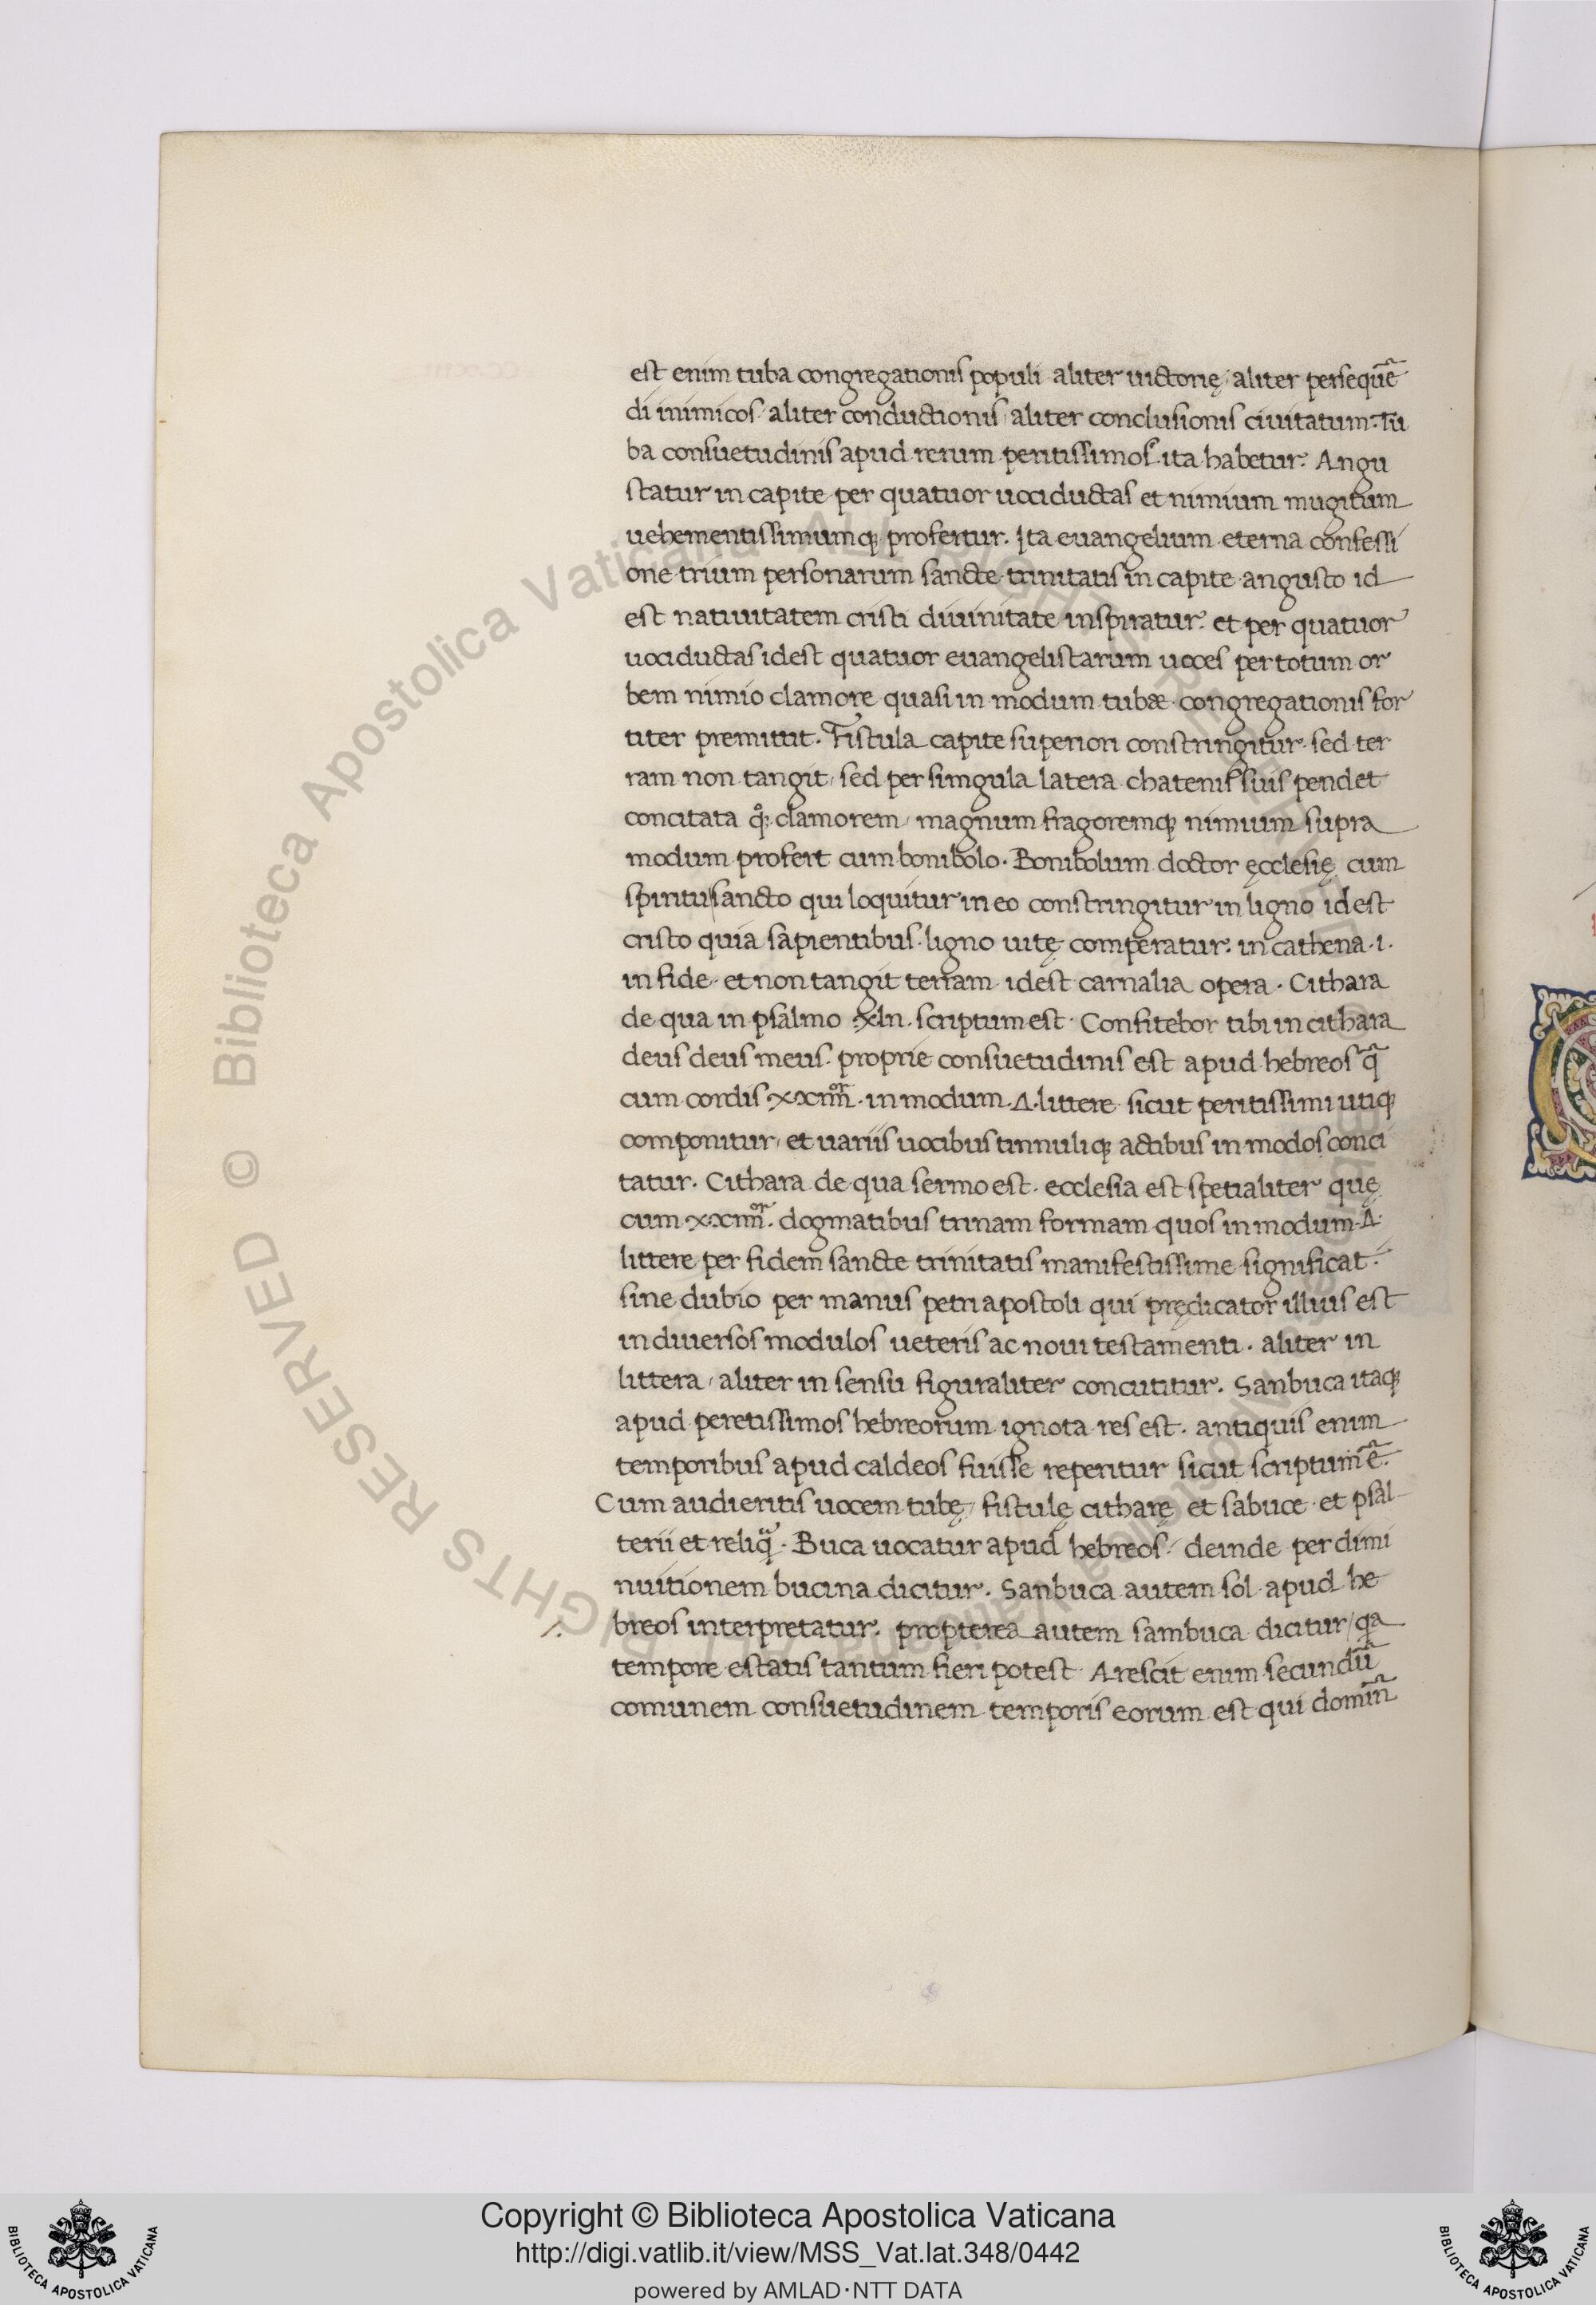 est enim tuba congregationis populi aliter uictorię, aliter persequẽ
di inimicos, aliter conductionis, aliter conclusionis ciuitatum. Tu
ba consuetudinis apud rerum peritissimos ita habetur. Angu
statur in capite per quatuor uociductas et nimium mugitum
uehementissimumq; profertur. Ita euangelium eterna confessi
one trium personarum sancte trinitatis in capite angusto id
est natiuitatem cristi diuinitate inspiratur. et per quatuor
uociductas idest quatuor euangelistarum uoces per totum or
bem nimio clamore quasi in modum tubæ congregationis for
titer premittit. Fistula capite superiori constringitur. sed ter
ram non tangit, sed per simgula latera chatenis suis pendet
concitata clamorem, magnum fragoremq; nimium supra
modum profert cum bonibolo. Bonibolum doctor ęcclesię cum
spiritu sancto qui loquitur in eo constringitur in ligno idest
cristo quia sapientibus ligno uitę comperatur. in cathena .i.
in fide et non tangit terram idest carnalia opera. Cithara
de qua in psalmo scriptum est. Confitebor tibi in cithara
deus deus meus. proprie consuetudinis est apud hebreos q̃
cum cordis in modum .Δ. littere sicut peritissimi utiq;
componitur, et uariis uocibus tinnuliq; actibus in modos conci
tatur. Cithara de qua sermo est. ecclesia est spetialiter quę
cum dogmatibus trinam formam quos in modum .Δ.
littere per fidem sancte trinitatis manifestissime significat.
sine dubio per manus petri apostoli qui prędicator illius est
in diuersos modulos ueteris ac noui testamenti. aliter in
littera, aliter in sensu figuraliter concutitur. Sanbuca itaq;
apud peretissimos hebreorum ignota res est. antiquis enim
temporibus apud caldeos fuisse reperitur sicut scriptum ẽ.
Cum audieritis uocem tubę, fistulę citharę et sabuce et psal
terii et reliq̃. Buca uocatur apud hebreos. deinde per dimi
nuitionem bucina dicitur. Sanbuca autem sol apud he
breos interpretatur. propterea autem sambuca dicitur, qa
tempore estatis tantum fieri potest. Arescit enim secundũ
comunem consuetudinem temporis eorum est qui domiñ
Copyright © Biblioteca Apostolica Vaticana
http://digi.vatlib.it/view/MSS_Vat.lat.348/0442
powered by AMLAD·NTT DATA
BIBLIOTECA APOSTOLICA VATICANA
BIBLIOTECA APOSTOLICA VATICANA
© Biblioteca Apostolica Vaticana ALL RIGHTS RESERVED © Biblioteca Apostolica Vaticana ALL RIGHTS RESERVED